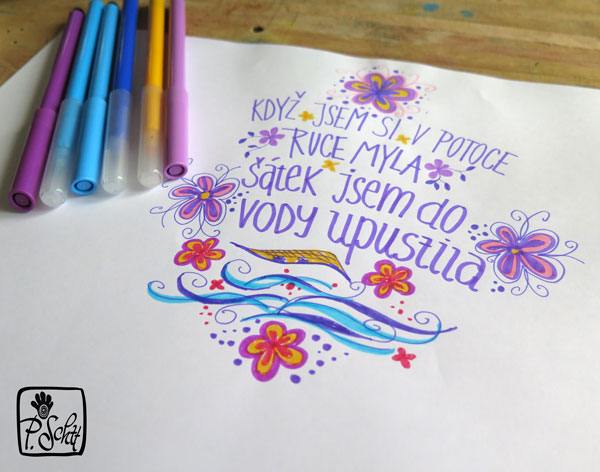 KDYŽ JSEM SI V POTOCE
RUCE MYLA
šátek jsem do
vody upustila
P. Schtt